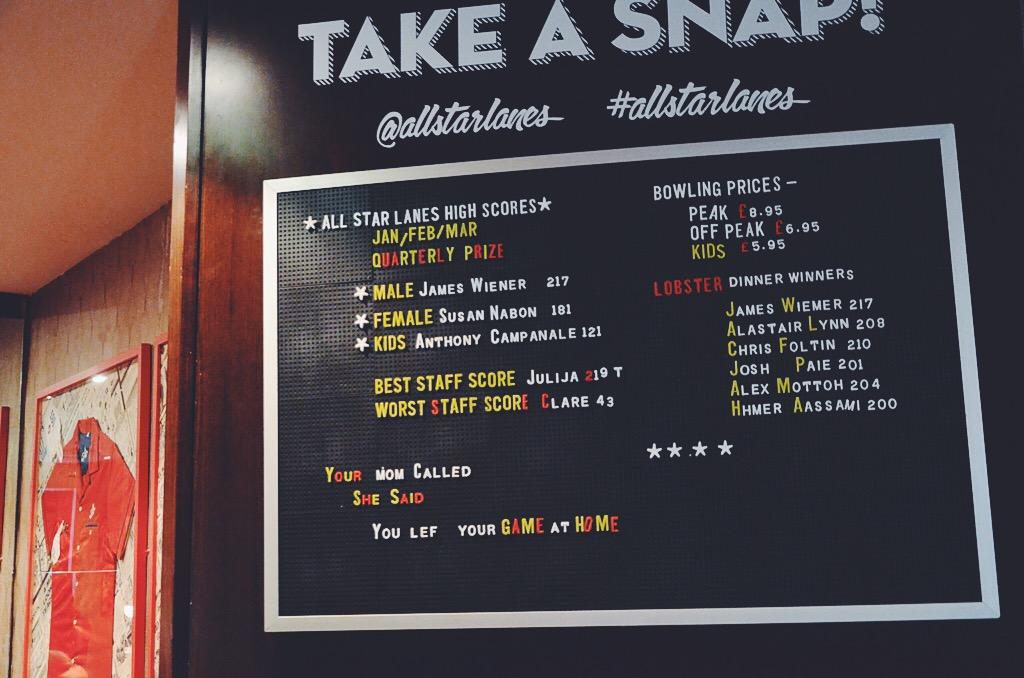 TAKE A SNAP!
@allstarlanes #allstarlanes
★ ALL STAR LANES HIGH SCORES ★
JAN/FEB/MAR
QUARTERLY PRIZE
★ MALE JAMES WIENER 217
★ FEMALE SUSAN NABON 181
★ KIDS ANTHONY CAMPANALE 121
BEST STAFF SCORE JULIJA 219 T
WORST STAFF SCORE CLARE 43
YOUR MOM CALLED
SHE SAID
YOU LEF YOUR GAME AT HOME
BOWLING PRICES –
PEAK £8.95
OFF PEAK £6.95
KIDS £5.95
LOBSTER DINNER WINNERS
JAMES WIEMER 217
ALASTAIR LYNN 208
CHRIS FOLTIN 210
JOSH PAIE 201
ALEX MOTTOH 204
HHMER AASSAMI 200
★★.★ ★